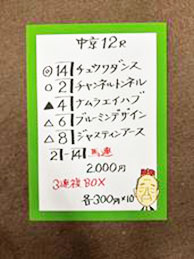 中京12R
◎ 14 チュウワダンス
○ 2 チャンネルトンネル
▲ 4 ナムラエイハブ
△ 6 ブルーミンデザイン
△ 8 ジャスティンアース
2-14 馬連
2.000円
3連複BOX
各300円×10